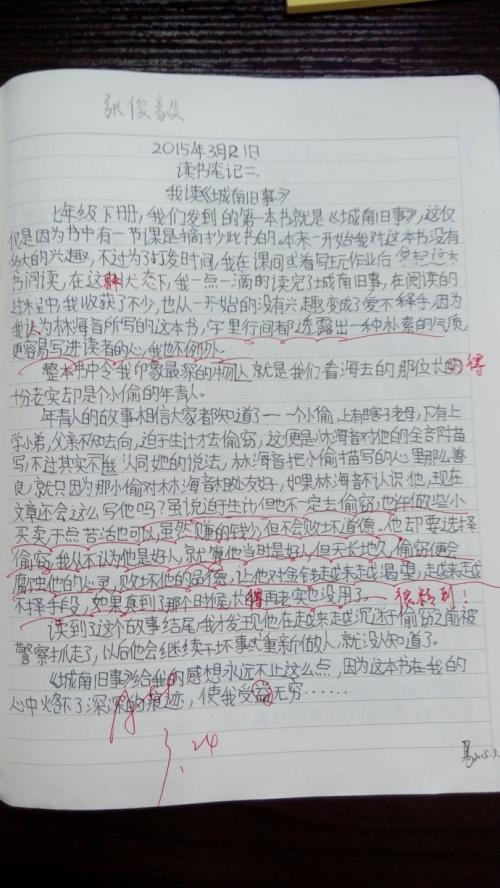 张俊毅
2015年3月21日
读书笔记二.
我读《城南旧事》
七年级下册,我们发到的第一本书就是《城南旧事》,这仅
仅是因为书中有一节课是摘抄此书的.本来一开始我对这本书没有
多大的兴趣,不过为了打发时间,我在课间或者写玩作业后
书阅读,在这种状态下,我一点一滴的读完了城南旧事,在阅读的
过程中,我收获了不少,也从一开始的没有兴趣变成了爱不释手,因为
我认为林海音所写的这本书,字里行间都透露出一种朴素的气质,
更容易写进读者的心,我也不例外.
整本书中令我印象最深的人物就是我们看海去的那位长的得
十份老实却是个小偷的年青人.
年青人的故事相信大家都知道了——一个小偷,上有瞎子老母,下有上
学小弟,父亲不知去向,迫于生计才去偷窃,这便是林海音对他的全部描
写,不过其实不我认同她的说法,林海音把小偷描写的心里那么善
良,就只因为那小偷对林海音相处友好,如果林海音不认识他,现在
文章还会这么写他吗?虽说迫于生计但也不一定去偷窃,也许做些小
买卖,干点苦活也可以,虽然赚的钱少,但不会败坏道德.他却要选择
偷窃.我从不认为他是好人,就算他当时是好人但天长地久,偷窃便会
腐蚀他的心灵,败坏他的品德,让他对金钱越来越渴望,越来越
不择手段,如果真到了那个时候,长得再老实也没用了.很精到!
读到了这个故事结尾,我才发现他在越来越沉迷于偷窃之前被
警察抓走了,以后他会继续干坏事或重新做人,就没人知道了.
《城南旧事》给我的感想永远不止这么点,因为这本书在我的
心中烙下了深深的痕迹,使我受益无穷……
3.24